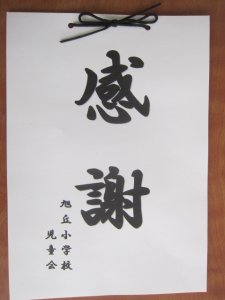 感謝
旭丘小学校
児童会